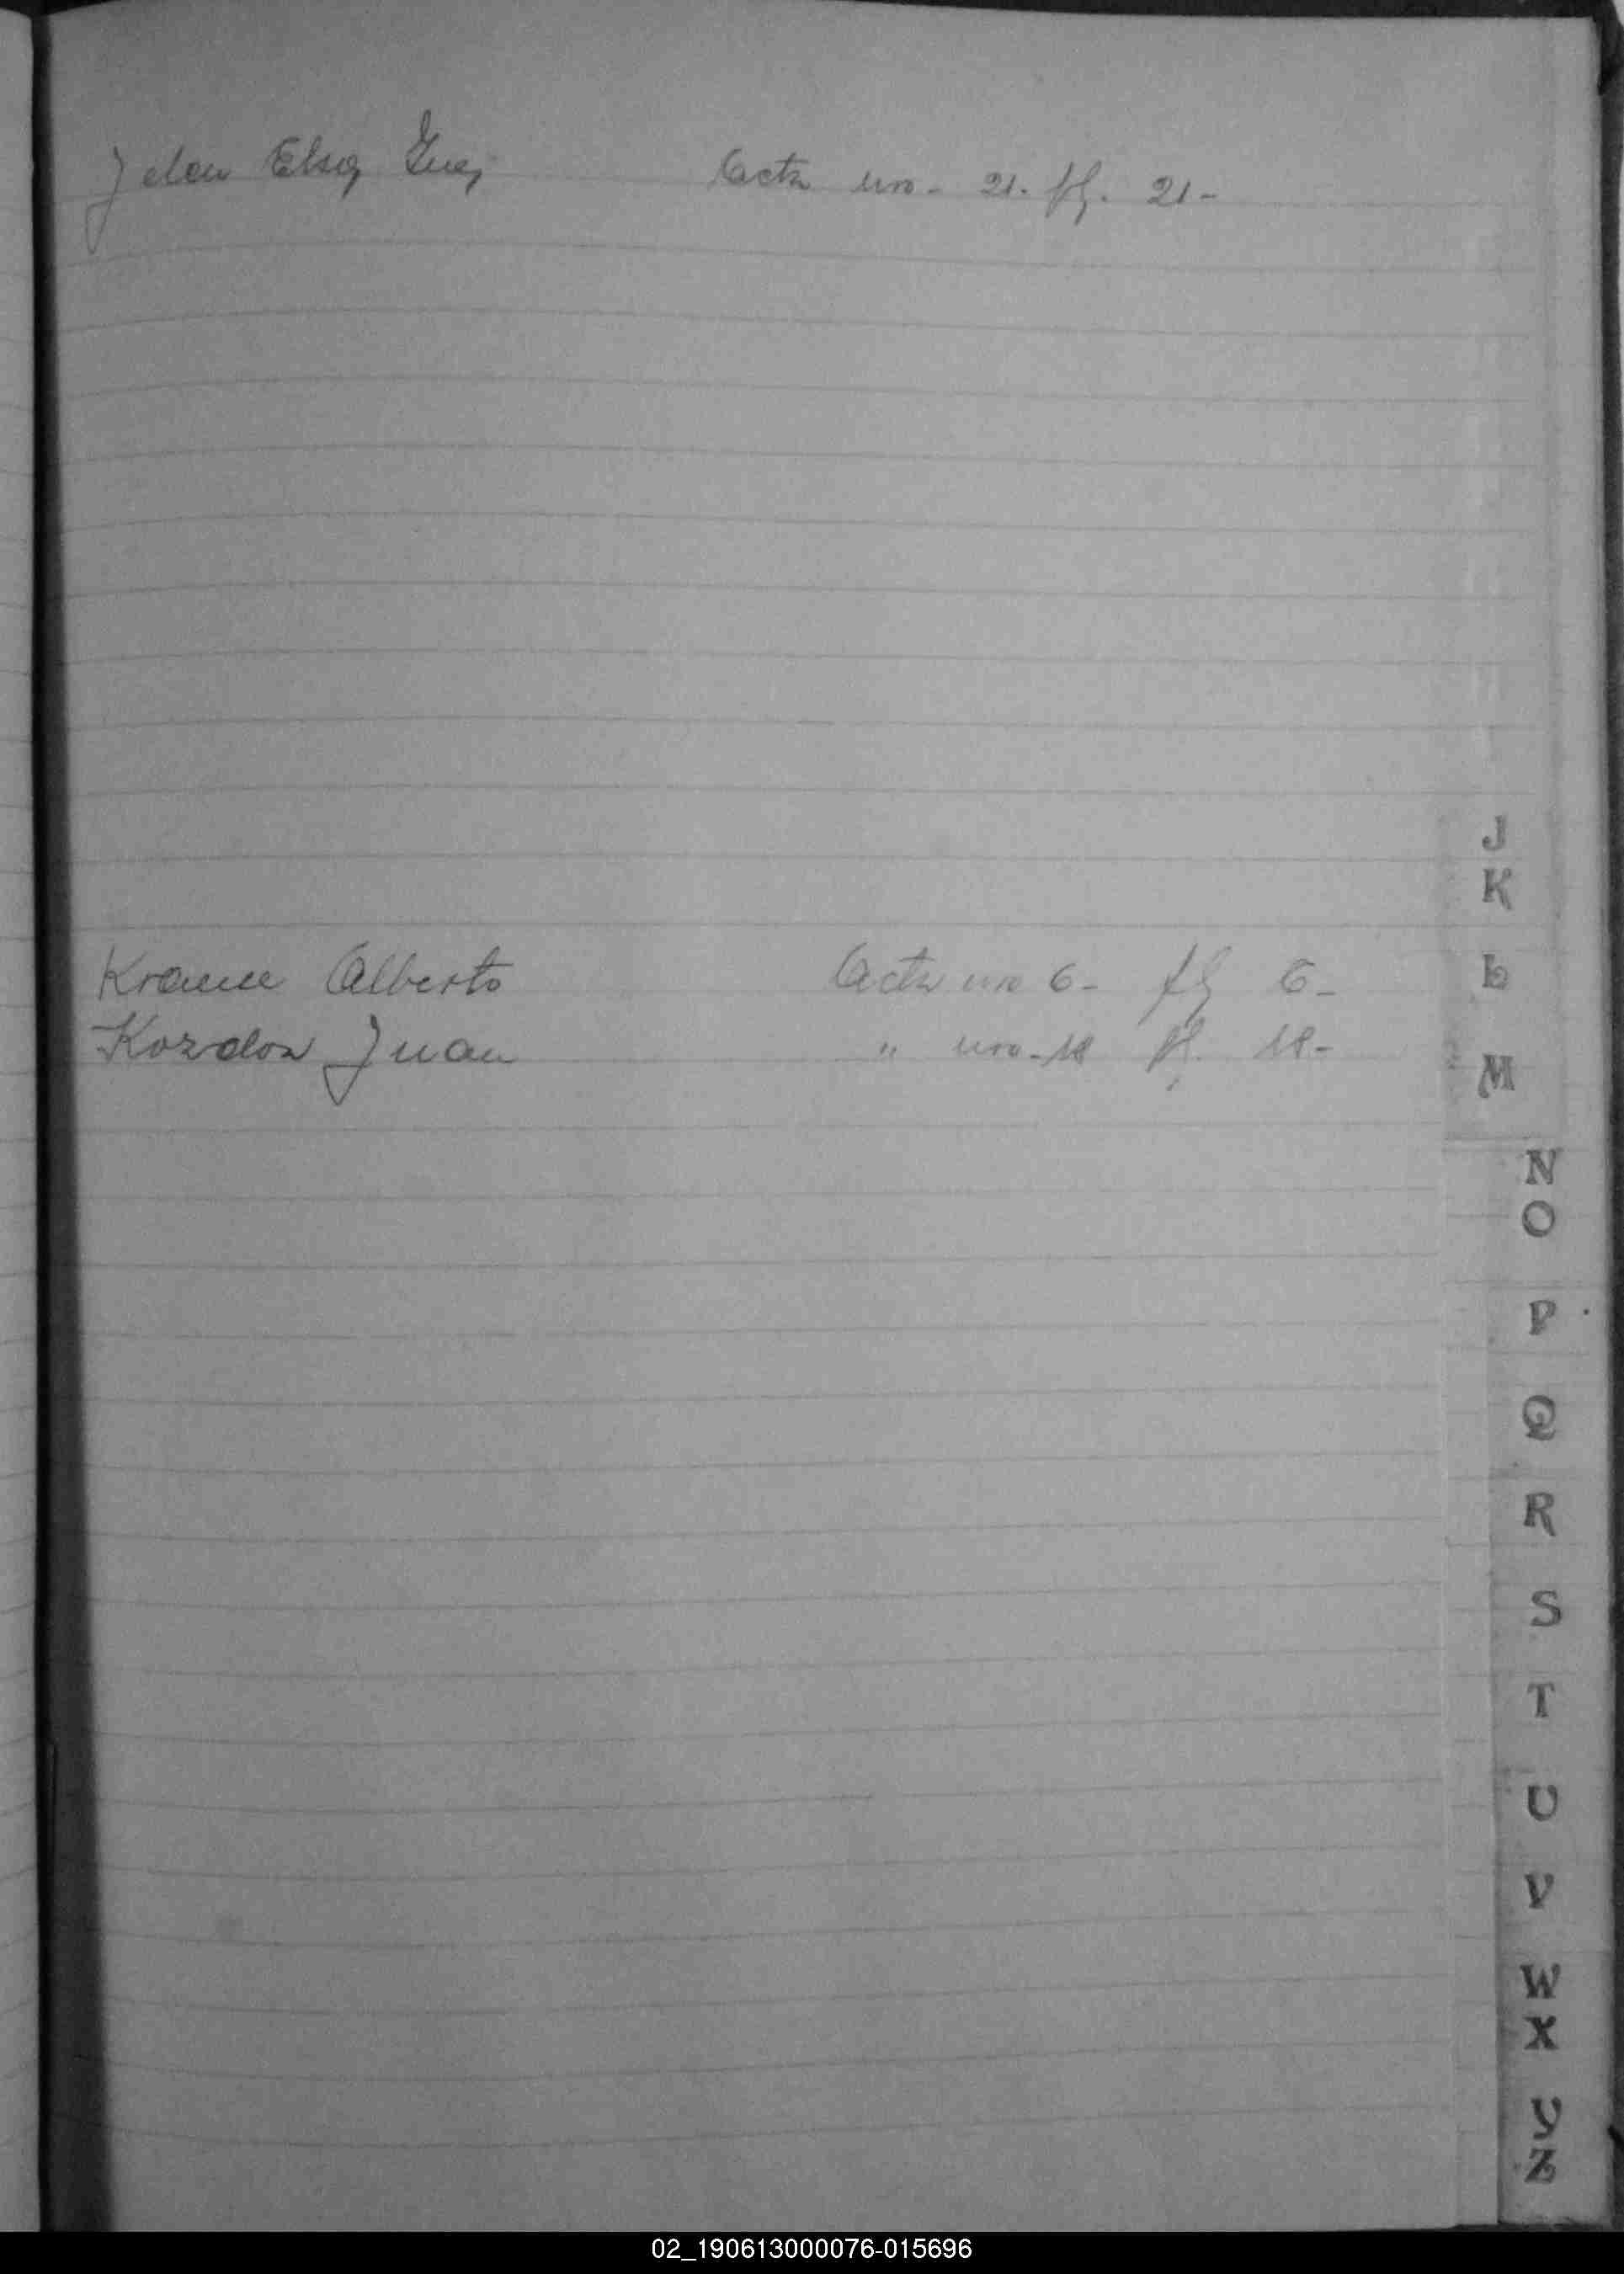 Jelen Elsa Inés Acta nro- 21. fl. 21-
Krause Alberto Acta nro 6- fl 6-
Kozdon Juan " nro-18 fl. 18-
J
K
L
M
N
O
P
Q
R
S
T
U
V
W
X
Y
Z
02_190613000076-015696